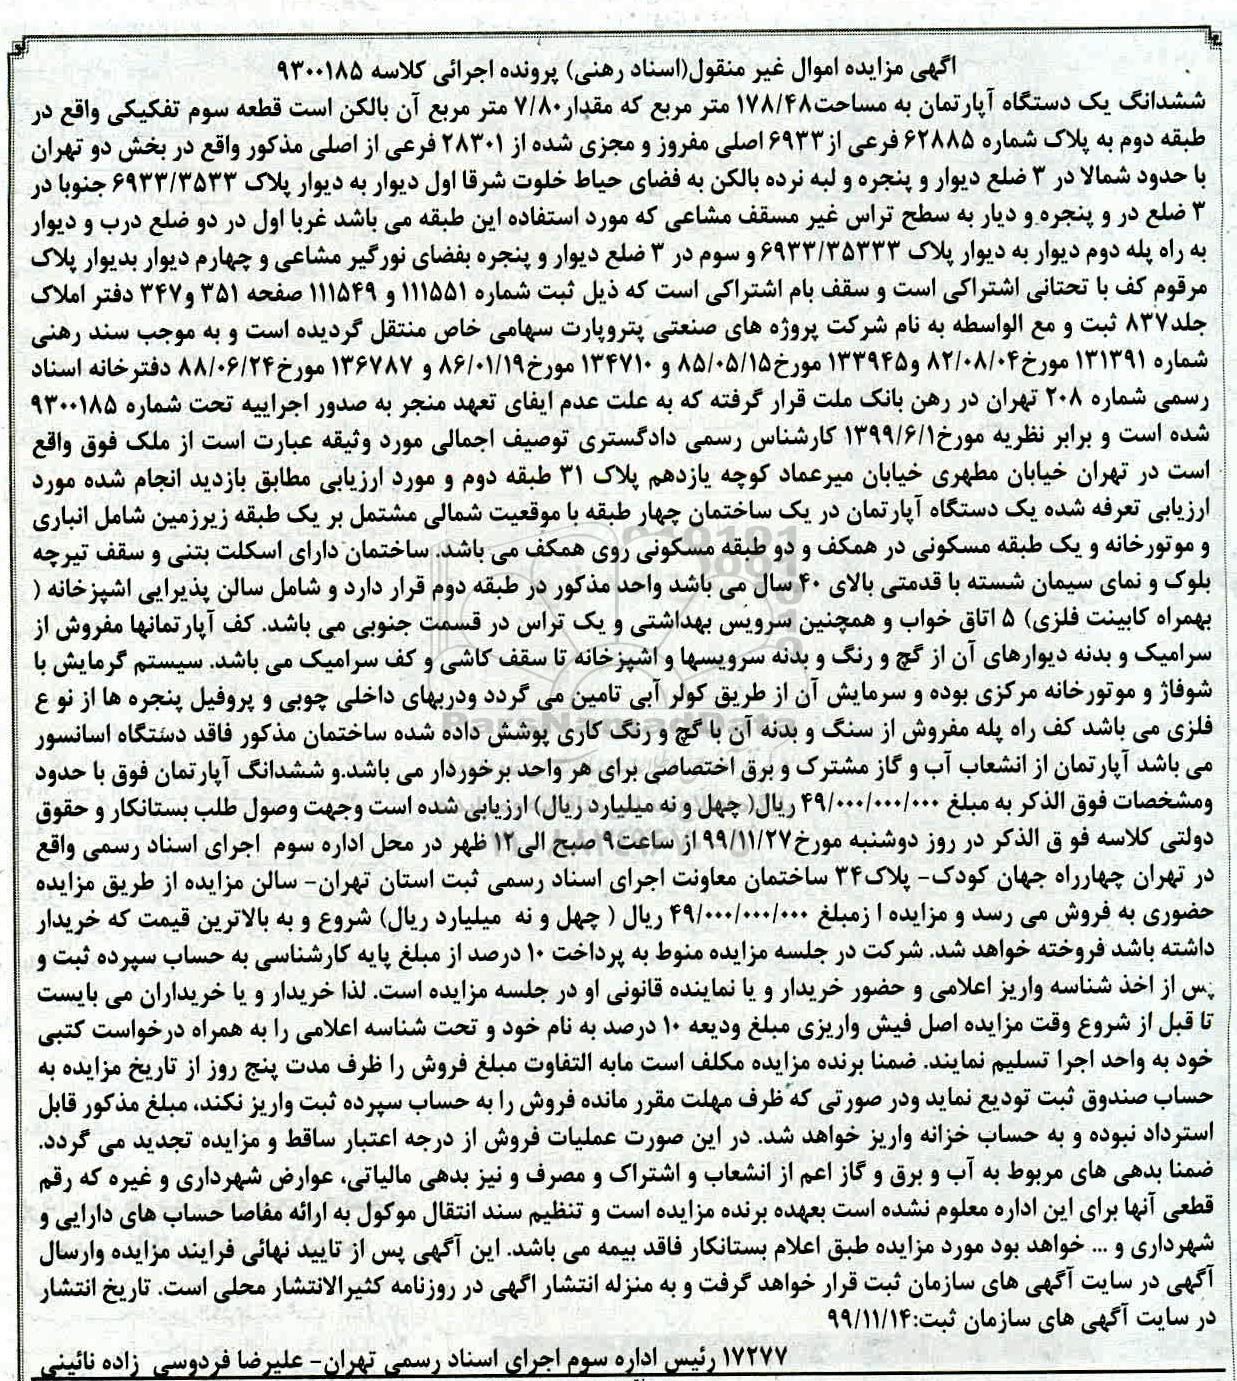 اگهی مزایده اموال غیر منقول(اسناد رهنی) پرونده اجرائی کلاسه ۹۳۰۰۱۸۵
ششدانگ یک دستگاه آپارتمان به مساحت۱۷۸/۴۸ متر مربع که مقدار۷/۸۰ متر مربع آن بالکن است قطعه سوم تفکیکی واقع در
طبقه دوم به پلاک شماره ۶۲۸۸۵ فرعی از۶۹۳۳ اصلی مفروز و مجزی شده از ۲۸۳۰۱ فرعی از اصلی مذکور واقع در بخش دو تهران
با حدود شمالا در ۳ ضلع دیوار و پنجره و لبه نرده بالکن به فضای حیاط خلوت شرقا اول دیوار به دیوار پلاک ۶۹۳۳/۳۵۳۳ جنوبا در
۳ ضلع در و پنجره و دیار به سطح تراس غیر مسقف مشاعی که مورد استفاده این طبقه می باشد غربا اول در دو ضلع درب و دیوار
به راه پله دوم دیوار به دیوار پلاک ۶۹۳۳/۳۵۳۳۳ و سوم در ۳ ضلع دیوار و پنجره بفضای نورگیر مشاعی و چهارم دیوار بدیوار پلاک
مرقوم کف با تحتانی اشتراکی است و سقف بام اشتراکی است که ذیل ثبت شماره ۱۱۱۵۵۱ و ۱۱۱۵۴۹ صفحه ۳۵۱ و۳۴۷ دفتر املاک
جلد۸۳۷ ثبت و مع الواسطه به نام شرکت پروژه های صنعتی پتروپارت سهامی خاص منتقل گردیده است و به موجب سند رهنی
شماره ۱۳۱۳۹۱ مورخ۸۲/۰۸/۰۴ و۱۳۳۹۴۵ مورخ۸۵/۰۵/۱۵ و ۱۳۴۷۱۰ مورخ۸۶/۰۱/۱۹ و ۱۳۶۷۸۷ مورخ۸۸/۰۶/۲۴ دفترخانه اسناد
رسمی شماره ۲۰۸ تهران در رهن بانک ملت قرار گرفته که به علت عدم ایفای تعهد منجر به صدور اجراییه تحت شماره ۹۳۰۰۱۸۵
شده است و برابر نظریه مورخ۱۳۹۹/۶/۱ کارشناس رسمی دادگستری توصیف اجمالی مورد وثیقه عبارت است از ملک فوق واقع
است در تهران خیابان مطهری خیابان میرعماد کوچه یازدهم پلاک ۳۱ طبقه دوم و مورد ارزیابی مطابق بازدید انجام شده مورد
ارزیابی تعرفه شده یک دستگاه آپارتمان در یک ساختمان چهار طبقه با موقعیت شمالی مشتمل بر یک طبقه زیرزمین شامل انباری
و موتورخانه و یک طبقه مسکونی در همکف و دو طبقه مسکونی روی همکف می باشد. ساختمان دارای اسکلت بتنی و سقف تیرچه
بلوک و نمای سیمان شسته با قدمتی بالای ۴۰ سال می باشد واحد مذکور در طبقه دوم قرار دارد و شامل سالن پذیرایی اشپزخانه (
بهمراه کابینت فلزی) ۵ اتاق خواب و همچنین سرویس بهداشتی و یک تراس در قسمت جنوبی می باشد. کف آپارتمانها مفروش از
سرامیک و بدنه دیوارهای آن از گچ و رنگ و بدنه سرویسها و اشپزخانه تا سقف کاشی و کف سرامیک می باشد. سیستم گرمایش با
شوفاژ و موتورخانه مرکزی بوده و سرمایش آن از طریق کولر آبی تامین می گردد ودربهای داخلی چوبی و پروفیل پنجره ها از نو ع
فلزی می باشد کف راه پله مفروش از سنگ و بدنه آن با گچ و رنگ کاری پوشش داده شده ساختمان مذکور فاقد دستگاه اسانسور
می باشد آپارتمان از انشعاب آب و گاز مشترک و برق اختصاصی برای هر واحد برخوردار می باشد.و ششدانگ آپارتمان فوق با حدود
ومشخصات فوق الذکر به مبلغ ۴۹/۰۰۰/۰۰۰/۰۰۰ ریال( چهل و نه میلیارد ریال) ارزیابی شده است وجهت وصول طلب بستانکار و حقوق
دولتی کلاسه فو ق الذکر در روز دوشنبه مورخ۹۹/۱۱/۲۷ از ساعت۹ صبح الی۱۲ ظهر در محل اداره سوم اجرای اسناد رسمی واقع
در تهران چهارراه جهان کودک- پلاک۳۴ ساختمان معاونت اجرای اسناد رسمی ثبت استان تهران- سالن مزایده از طریق مزایده
حضوری به فروش می رسد و مزایده ا زمبلغ ۴۹/۰۰۰/۰۰۰/۰۰۰ ریال ( چهل و نه میلیارد ریال) شروع و به بالاترین قیمت که خریدار
داشته باشد فروخته خواهد شد. شرکت در جلسه مزایده منوط به پرداخت ۱۰ درصد از مبلغ پایه کارشناسی به حساب سپرده ثبت و
پس از اخذ شناسه واریز اعلامی و حضور خریدار و یا نماینده قانونی او در جلسه مزایده است. لذا خریدار و یا خریداران می بایست
تا قبل از شروع وقت مزایده اصل فیش واریزی مبلغ ودیعه ۱۰ درصد به نام خود و تحت شناسه اعلامی را به همراه درخواست کتبی
خود به واحد اجرا تسلیم نمایند. ضمنا برنده مزایده مکلف است مابه التفاوت مبلغ فروش را ظرف مدت پنج روز از تاریخ مزایده به
حساب صندوق ثبت تودیع نماید ودر صورتی که ظرف مهلت مقرر مانده فروش را به حساب سپرده ثبت واریز نکند، مبلغ مذکور قابل
استرداد نبوده و به حساب خزانه واریز خواهد شد. در این صورت عملیات فروش از درجه اعتبار ساقط و مزایده تجدید می گردد.
ضمنا بدهی های مربوط به آب و برق و گاز اعم از انشعاب و اشتراک و مصرف و نیز بدهی مالیاتی، عوارض شهرداری و غیره که رقم
قطعی آنها برای این اداره معلوم نشده است بعهده برنده مزایده است و تنظیم سند انتقال موکول به ارائه مفاصا حساب های دارایی و
شهرداری و ... خواهد بود مورد مزایده طبق اعلام بستانکار فاقد بیمه می باشد. این آگهی پس از تایید نهائی فرایند مزایده وارسال
آگهی در سایت آگهی های سازمان ثبت قرار خواهد گرفت و به منزله انتشار اگهی در روزنامه کثیرالانتشار محلی است. تاریخ انتشار
در سایت آگهی های سازمان ثبت:۹۹/۱۱/۱۴
۱۷۲۷۷ رئیس اداره سوم اجرای اسناد رسمی تهران- علیرضا فردوسی زاده نائینی